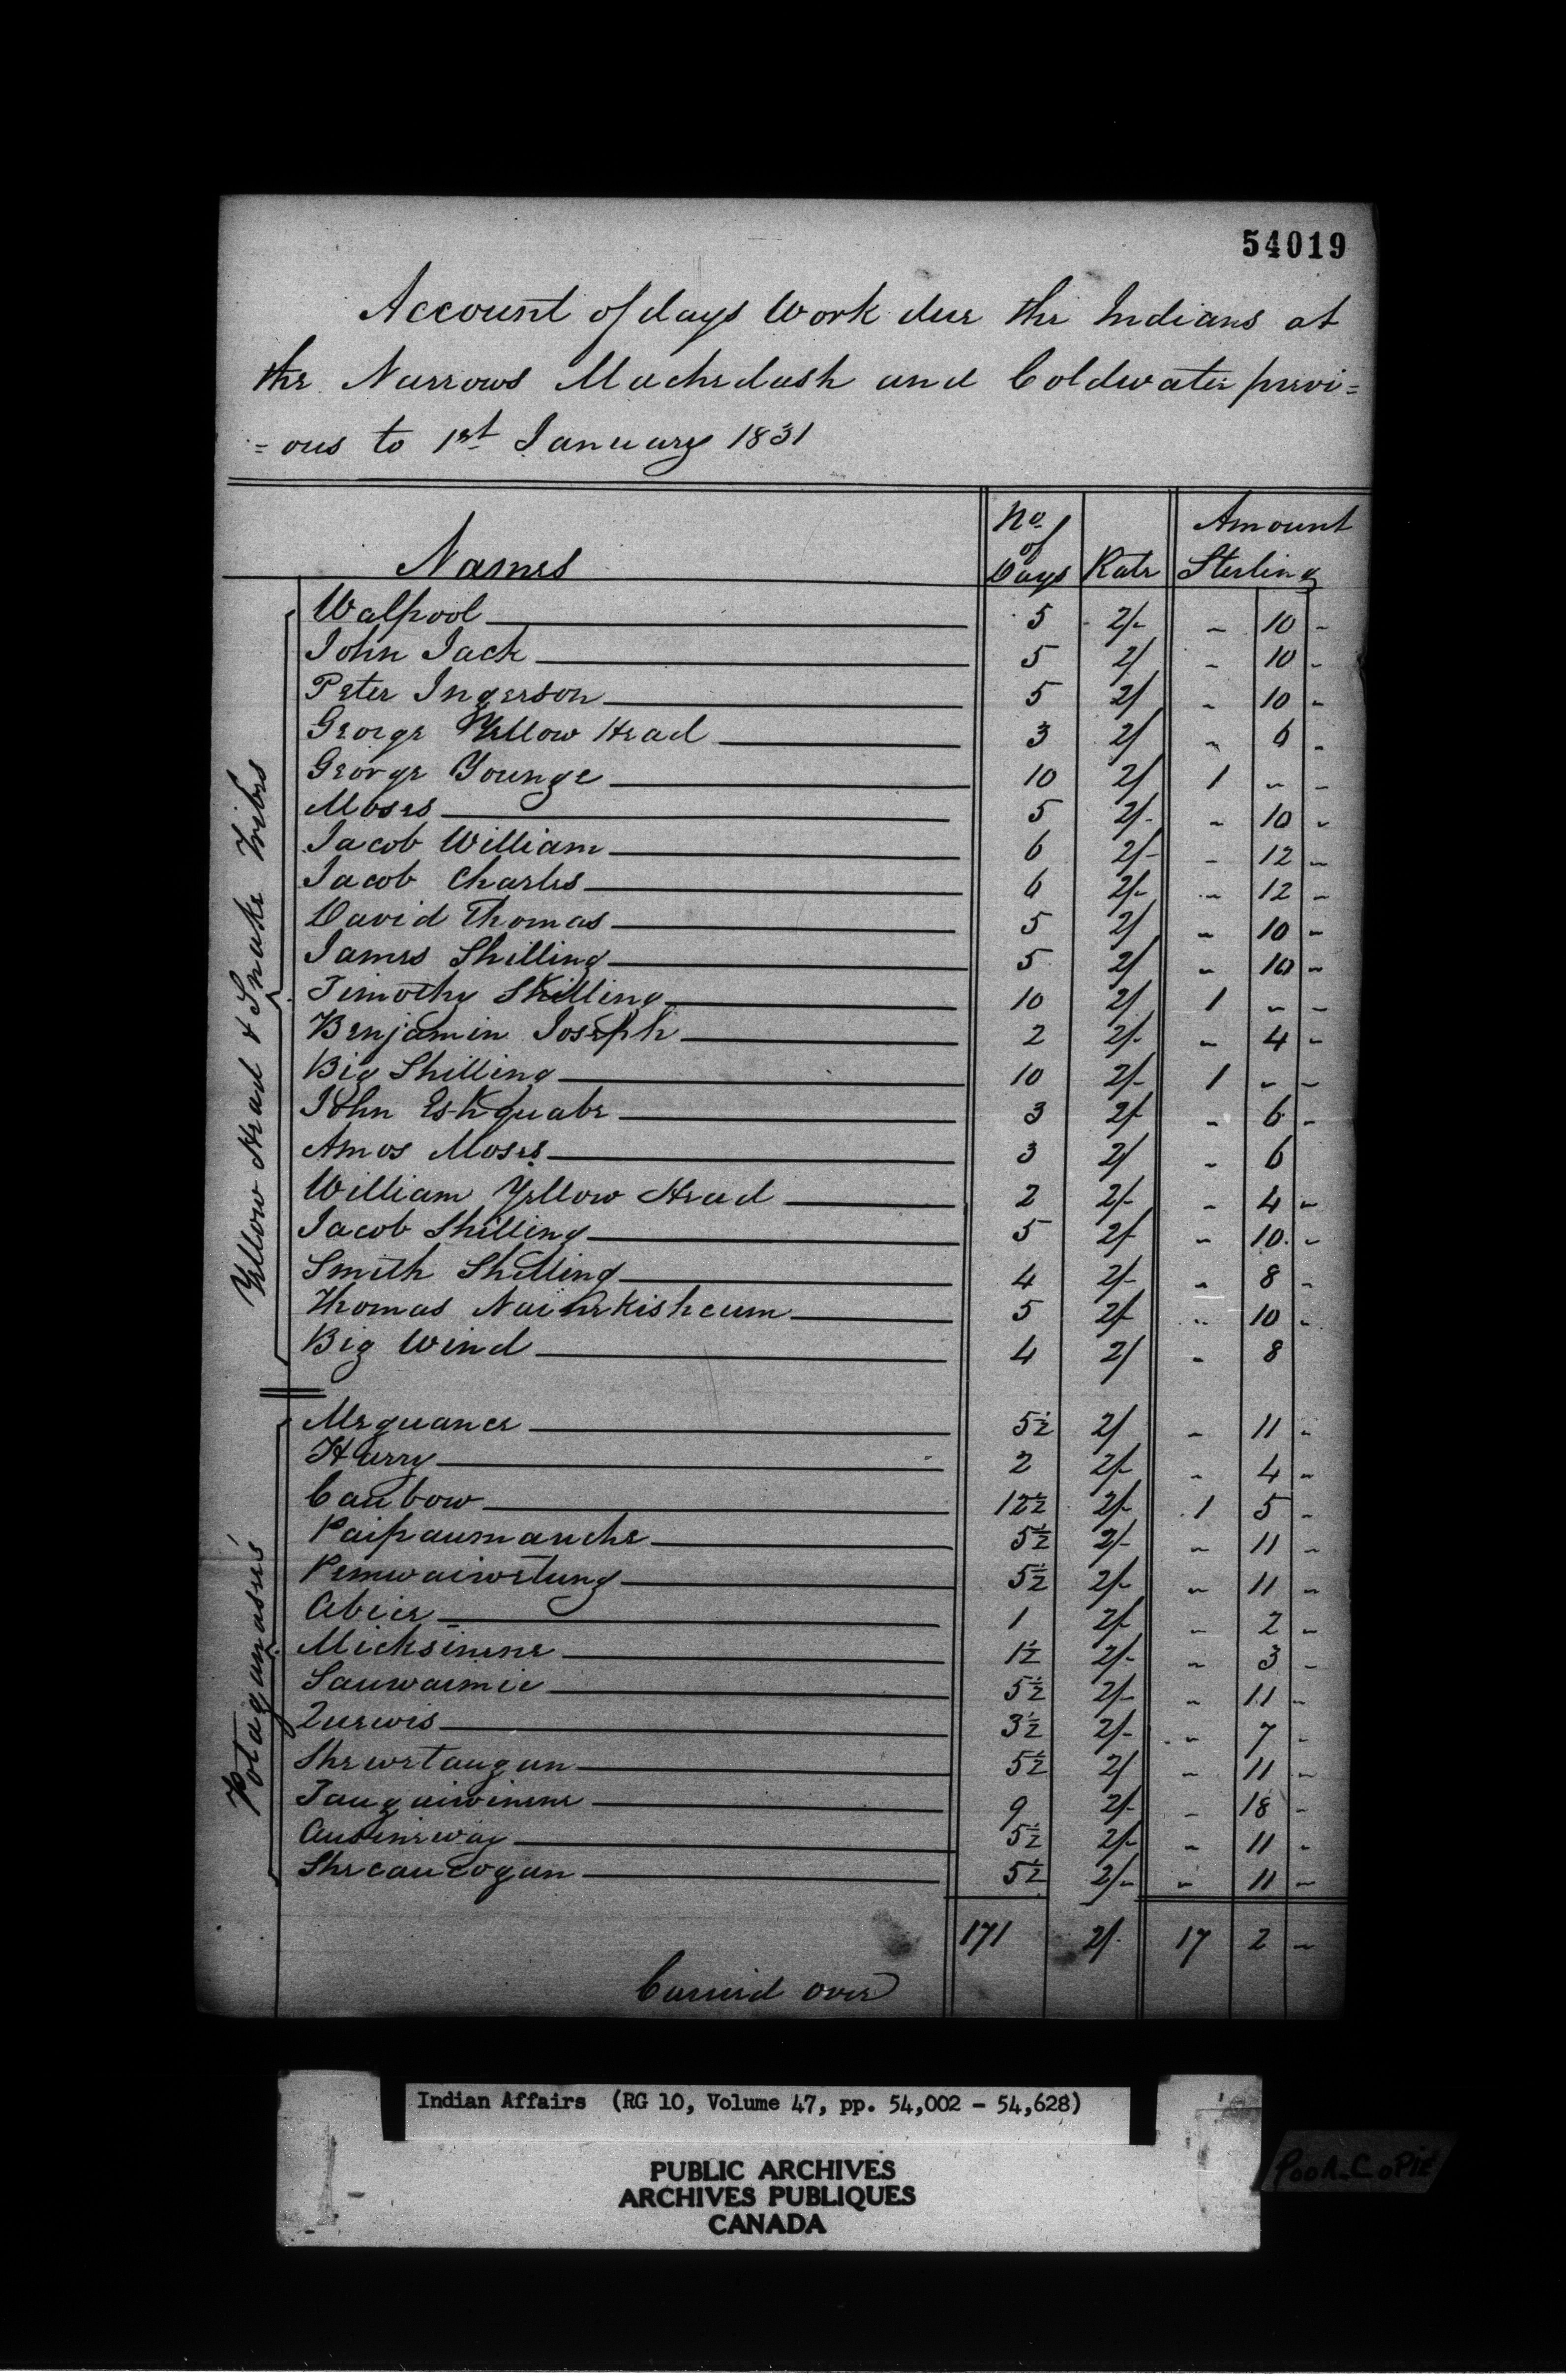 54019
Account of days Work due the Indians at
the Narrows Machedash and Coldwater previ=
=ous to 1st January 1831
Names No. of Days Rate Amount Sterling
Yellow Head & Snake Tribes
Walpool 5 2/- - 10 -
John Jack 5 2/ - 10 -
Peter Ingerson 5 2/ - 10 -
George Yellow Head 3 2/ - 6 -
George Younge 10 2/ 1 - -
Moses 5 2/- - 10 -
Jacob William 6 2/- - 12 -
Jacob Charles 6 2/- - 12 -
David Thomas 5 2/ - 10 -
James Shilling 5 2/ - 10 -
Timothy Shilling 10 2/ 1 - -
Benjamin Joseph 2 2/- - 4 -
Big Shilling 10 2/- 1 - -
John Eshquabe 3 2/- - 6 -
Amos Moses 3 2/ - 6
William Yellow Head 2 2/- - 4 -
Jacob Shilling 5 2/ - 10 -
Smith Shilling 4 2/- - 8 -
Thomas 5 2/- - 10 -
Big Wind 4 2/ - 8
Potaganasees
Mequance 5½ 2/ - 11 -
Harry 2 2/- - 4 -
Caubow 12½ 2/- 1 5 -
Paipaumauche 5½ 2/- - 11 -
Pemwaiwetung 5½ 2/- - 11 -
Abeie 1 2/- - 2 -
Micksinene 1½ 2/- - 3 -
Sauwaimie 5½ 2/- - 11 -
Quewis 3½ 2/- - 7 -
Shewetaugun 5½ 2/ - 11 -
Taugaiwinene 9 2/- - 18 -
Auseneway 5½ 2/- - 11 -
Shecaucogan 5½ 2/- - 11 -
171 2/- 17 2 -
Carried over
Indian Affairs (RG 10, Volume 47, pp. 54,002 - 54,628)
PUBLIC ARCHIVES
ARCHIVES PUBLIQUES
CANADA
POOR COPIE